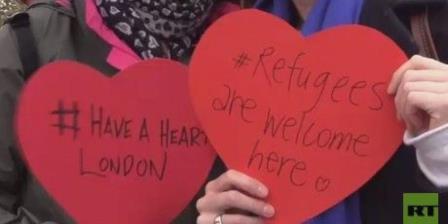 # HAVE A HEART
LONDON
#Refugees
are welcome
here
RT